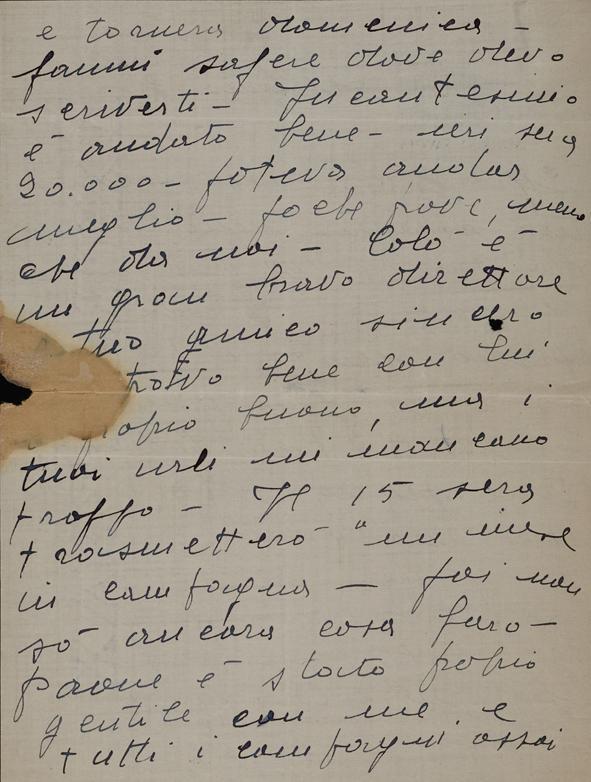 e tornerà domenica -
fammi sapere dove devo
scriverti - Incantesimo
è andato bene - ieri sera
20.000 - poteva andar
meglio - poche prove, meno
che da noi - Colò è
un gran bravo direttore
tuo amico sincero
trovo bene con lui
proprio buono, ma i
tuoi urli mi mancano
troppo - Il 15 sera
trasmetterò "un mese
in campagna - poi non
sò ancora cosa farò -
Paone è stato proprio
gentile con me e
tutti i compagni assai